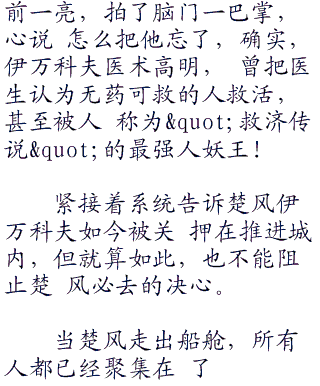 前一亮，拍了脑门一巴掌，
心说 怎么把他忘了，确实，
伊万科夫医术高明， 曾把医
生认为无药可救的人救活，
甚至被人 称为&quot;救济传
说&quot;的最强人妖王！
紧接着系统告诉楚风伊
万科夫如今被关 押在推进城
内，但就算如此，也不能阻
止楚 风必去的决心。
当楚风走出船舱，所有
人都已经聚集在 了